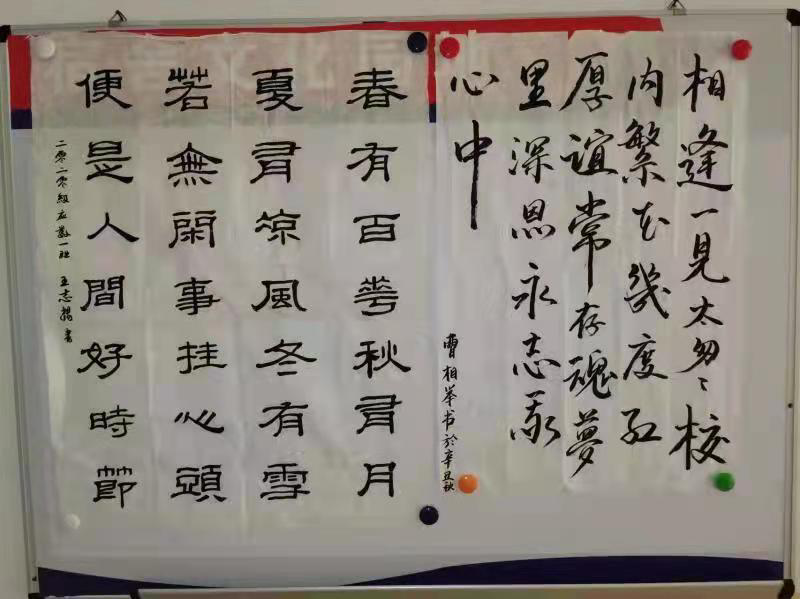 相逢一見太匆〻校
内繁花幾度红
厚誼常存魂夢
里深恩永志我
心中
曹相举书於辛丑秋
春有百花秋有月
夏有凉風冬有雪
若無閑事挂心頭
便是人間好時節
二零二零級应数一班 王志楊書